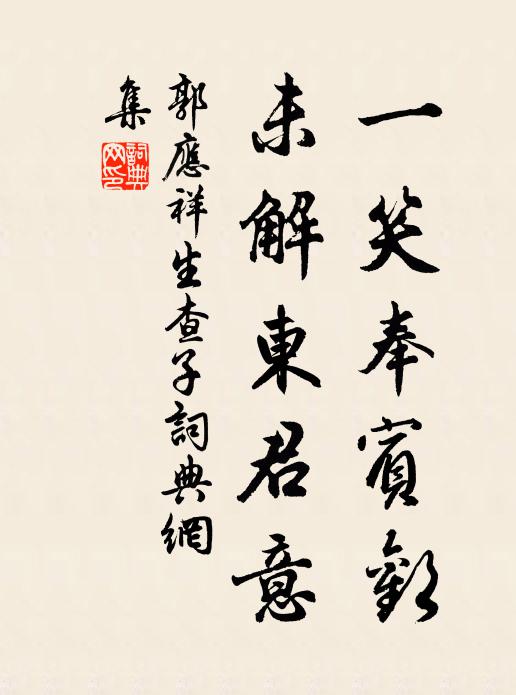 一笑奉賓歡
未解東君意
郭應祥生查子詞典網
集
詞典
网印